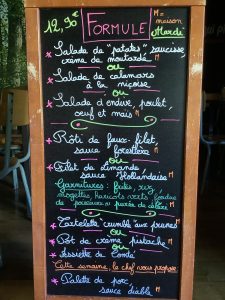 12,90€ FORMULE M = maison
Mardi
* Salade de "patates" saucisse,
crème de moutarde M
ou
* Salade de calamars
à la niçoise M
ou
* Salade d'endive, poulet,
oeuf et maïs M
* Rôti de faux-filet
sauce forestière M
ou
* Filet de limande
sauce Hollandaise M
Garnitures : frites, riz,
mogettes, haricots verts, fondue
de poireaux M purée de céleri M
* Tartelette "crumble" aux prunes M
ou
* Pot de crème pistache M
ou
* Assiette de Comté
Cette semaine, le chef vous propose :
* Palette de porc,
sauce diable M